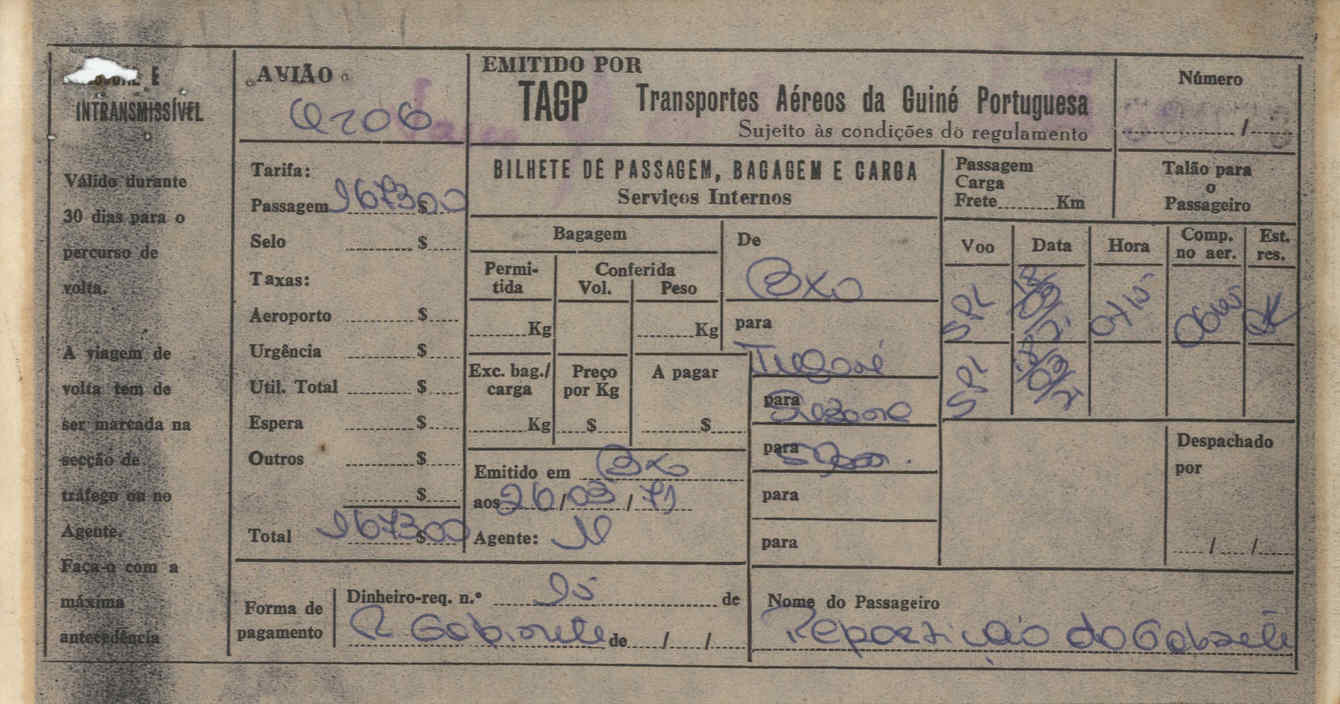 E
INTRANSMISSÍVEL
Válido durante
30 dias para o
percurso de
volta.
A viagem de
volta tem de
ser marcada na
secção de
tráfego ou no
Agente.
Faça-o com a
máxima
antecedência
AVIÃO
Tarifa:
Passagem $
Selo $
Taxas:
Aeroporto $
Urgência $
Util. Total $
Espera $
Outros $
$
Total $
EMITIDO POR
TAGP Transportes Aéreos da Guiné Portuguesa
Sujeito às condições do regulamento
Número
/
BILHETE DE PASSAGEM, BAGAGEM E CARGA
Serviços Internos
Passagem
Carga
Frete Km
Talão para
o
Passageiro
Bagagem
Permi-
tida
Conferida
Vol. Peso
Kg Kg
Exc. bag./
carga
Preço
por Kg
A pagar
Kg $ $
Emitido em Bxo
aos 26/03/71
Agente:
De
Bxo
para
para
para
para
para
Voo Data Hora Comp.
no aer. Est.
res.
SPL 0715 OK
SPL
Despachado
por
/ /
Forma de
pagamento
Dinheiro-req. n.º 95 de
R. Gabinete de / /
Nome do Passageiro
Repartição do Gabinete